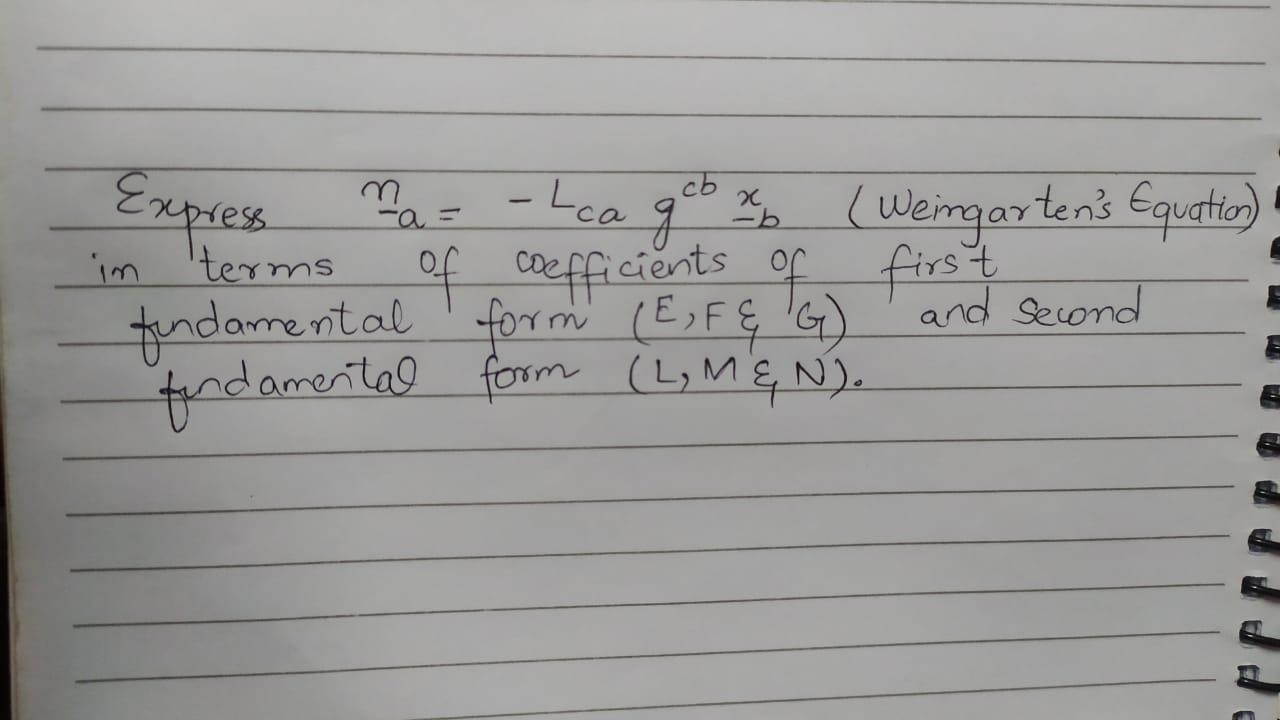 Express n̲ₐ = - L_ca g^cb x̲_b (Weingarten's Equation)
in terms of coefficients of first
fundamental form (E, F & G) and second
fundamental form (L, M & N).